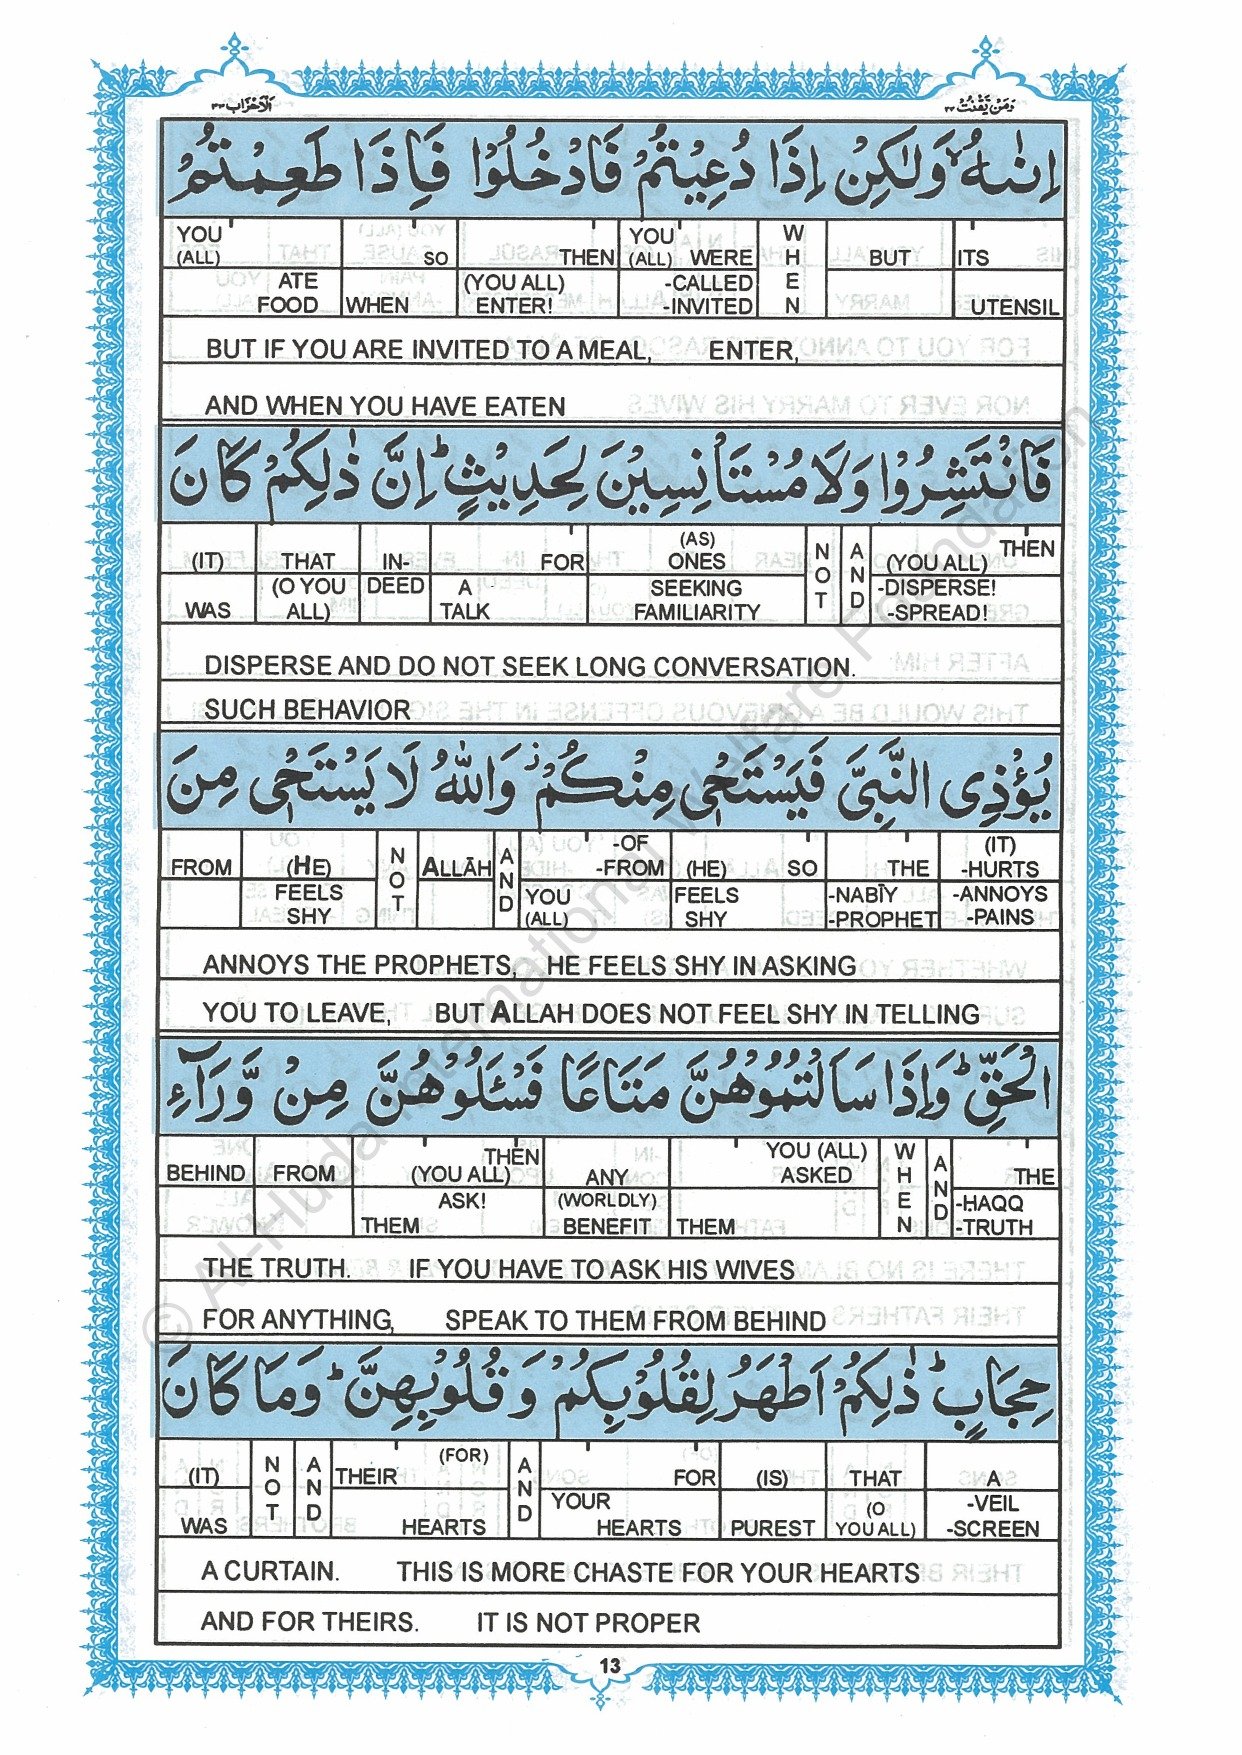 وَمَنْ يَّقْنُتْ ٢٢
اَلْاَحْزَاب ٣٣
اِنٰىهُ ۙ وَلٰكِنْ اِذَا دُعِيْتُمْ فَادْخُلُوْا فَاِذَا طَعِمْتُمْ
YOU (ALL) SO THEN YOU (ALL) WERE WHEN BUT ITS
ATE FOOD WHEN (YOU ALL) ENTER! -CALLED -INVITED UTENSIL
BUT IF YOU ARE INVITED TO A MEAL, ENTER,
AND WHEN YOU HAVE EATEN
فَانْتَشِرُوْا وَلَا مُسْتَاْنِسِيْنَ لِحَدِيْثٍ ؕ اِنَّ ذٰلِكُمْ كَانَ
(IT) THAT IN- FOR (AS) ONES NOT AND THEN (YOU ALL)
WAS (O YOU ALL) DEED A TALK SEEKING FAMILIARITY -DISPERSE! -SPREAD!
DISPERSE AND DO NOT SEEK LONG CONVERSATION.
SUCH BEHAVIOR
يُؤْذِى النَّبِىَّ فَيَسْتَحْىٖ مِنْكُمْ ز وَاللّٰهُ لَا يَسْتَحْىٖ مِنَ
FROM (HE) NOT ALLĀH AND -OF -FROM (HE) SO THE (IT) -HURTS
FEELS SHY YOU (ALL) FEELS SHY -NABĪY -PROPHET -ANNOYS -PAINS
ANNOYS THE PROPHETS, HE FEELS SHY IN ASKING
YOU TO LEAVE, BUT ALLAH DOES NOT FEEL SHY IN TELLING
الْحَقِّ ؕ وَاِذَا سَاَلْتُمُوْهُنَّ مَتَاعًا فَسْـَٔلُوْهُنَّ مِنْ وَّرَآءِ
BEHIND FROM THEN (YOU ALL) ANY YOU (ALL) ASKED WHEN AND THE
ASK! THEM (WORLDLY) BENEFIT THEM -ḤAQQ -TRUTH
THE TRUTH. IF YOU HAVE TO ASK HIS WIVES
FOR ANYTHING, SPEAK TO THEM FROM BEHIND
حِجَابٍ ؕ ذٰلِكُمْ اَطْهَرُ لِقُلُوْبِكُمْ وَقُلُوْبِهِنَّ ؕ وَمَا كَانَ
(IT) NOT AND THEIR (FOR) AND FOR (IS) THAT A
WAS HEARTS YOUR HEARTS PUREST (O YOU ALL) -VEIL -SCREEN
A CURTAIN. THIS IS MORE CHASTE FOR YOUR HEARTS
AND FOR THEIRS. IT IS NOT PROPER
13
© Al-Huda International Welfare Foundation